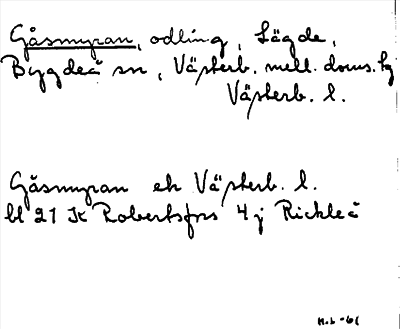 Gåsmyran, odling, Lägde,
Bygdeå sn, Västerb. mell. doms. hg
Västerb. l.
Gåsmyran ek Västerb. l.
bl 21 Jk Robertsfors 4 j Rickleå